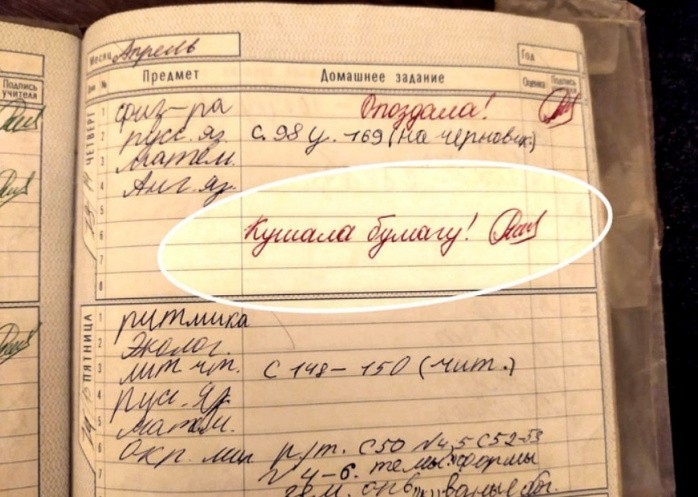 Месяц Апрель
Год
Подпись учителя
Дни № Предмет Домашнее задание Оценка Подпись
ЧЕТВЕРГ
1 физ-ра Опоздала!
2 русс. яз. с. 98 у. 169 (на чернович.)
3 матем.
4 Анг. яз.
5
6 Кушала бумагу!
7
8
ПЯТНИЦА
1 ритмика
2 Эколог.
3 лит чт. с 148-150 (чит.)
4 русс. яз.
5 матем.
6 Окр. мир р/т. с 50 № 4,5 с 52-53
7 № 4-6. темы: формы